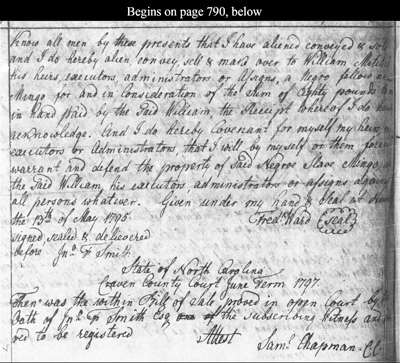 Begins on page 790, below
Know all men by these presents that I have aliened conveyed & sold
and I do hereby alien convey, sell & make over to William
his heirs, executors, administrators or assigns, a Negro fellow
Mingo for and in Consideration of the Sum of Eighty pounds to
in hand paid by the Said William, the Receipt whereof I do
acknowledge. And I do hereby Covenant for myself my heirs
executors or Administrators that I will by myself or them forever
warrant and defend the property of Said Negroe Slave Mingo, to
the Said William, his executors, administrators or assigns against
all persons whatever. Given under my hand & Seal at
the 13th of May 1795
Fredk Ward Seal
signed, sealed & delievered
before Jno. Smith
State of North Carolina
Craven County Court June Term 1797.
Then was the within Bill of Sale proved in open Court by
Oath of Jno. Smith Esq one of the subscribing Witness and
red to be registered
Attest Saml Chapman Cl